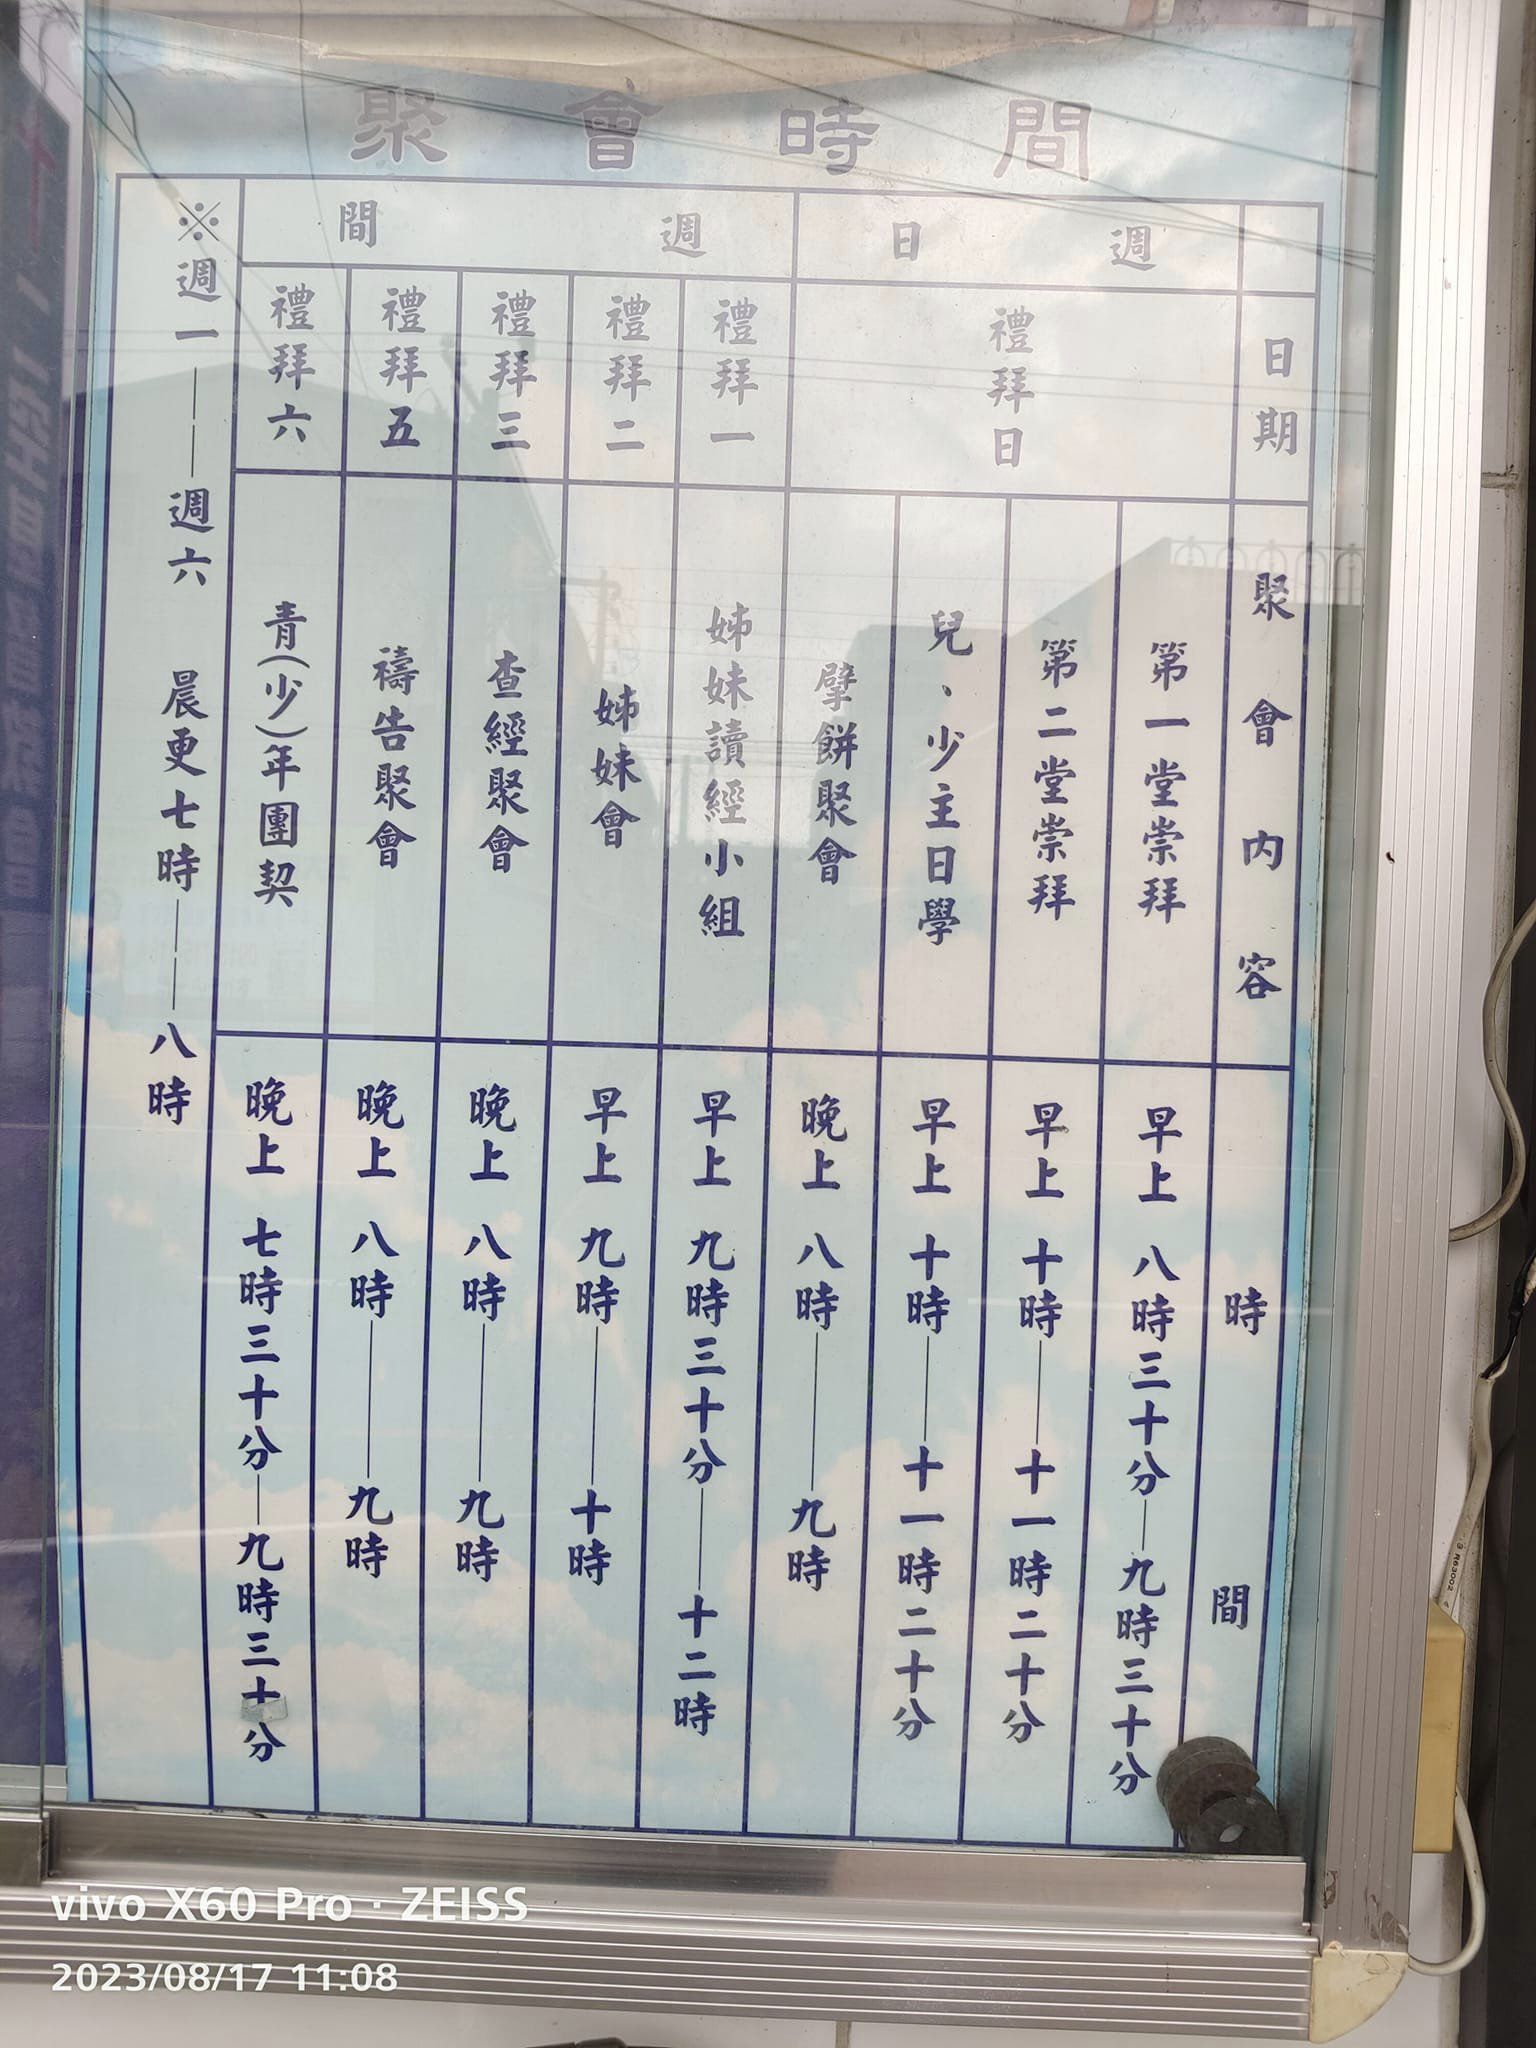 聚會時間
日期
聚會內容
時間
週日
禮拜日
第一堂崇拜
早上 八時三十分—九時三十分
第二堂崇拜
早上 十時——十一時二十分
兒、少主日學
早上 十時——十一時二十分
擘餅聚會
晚上 八時——九時
週間
禮拜一
姊妹讀經小組
早上 九時三十分——十二時
禮拜二
姊妹會
早上 九時——十時
禮拜三
查經聚會
晚上 八時——九時
禮拜五
禱告聚會
晚上 八時——九時
禮拜六
青(少)年團契
晚上 七時三十分—九時三十分
※週一——週六 晨更七時——八時
vivo X60 Pro · ZEISS
2023/08/17 11:08